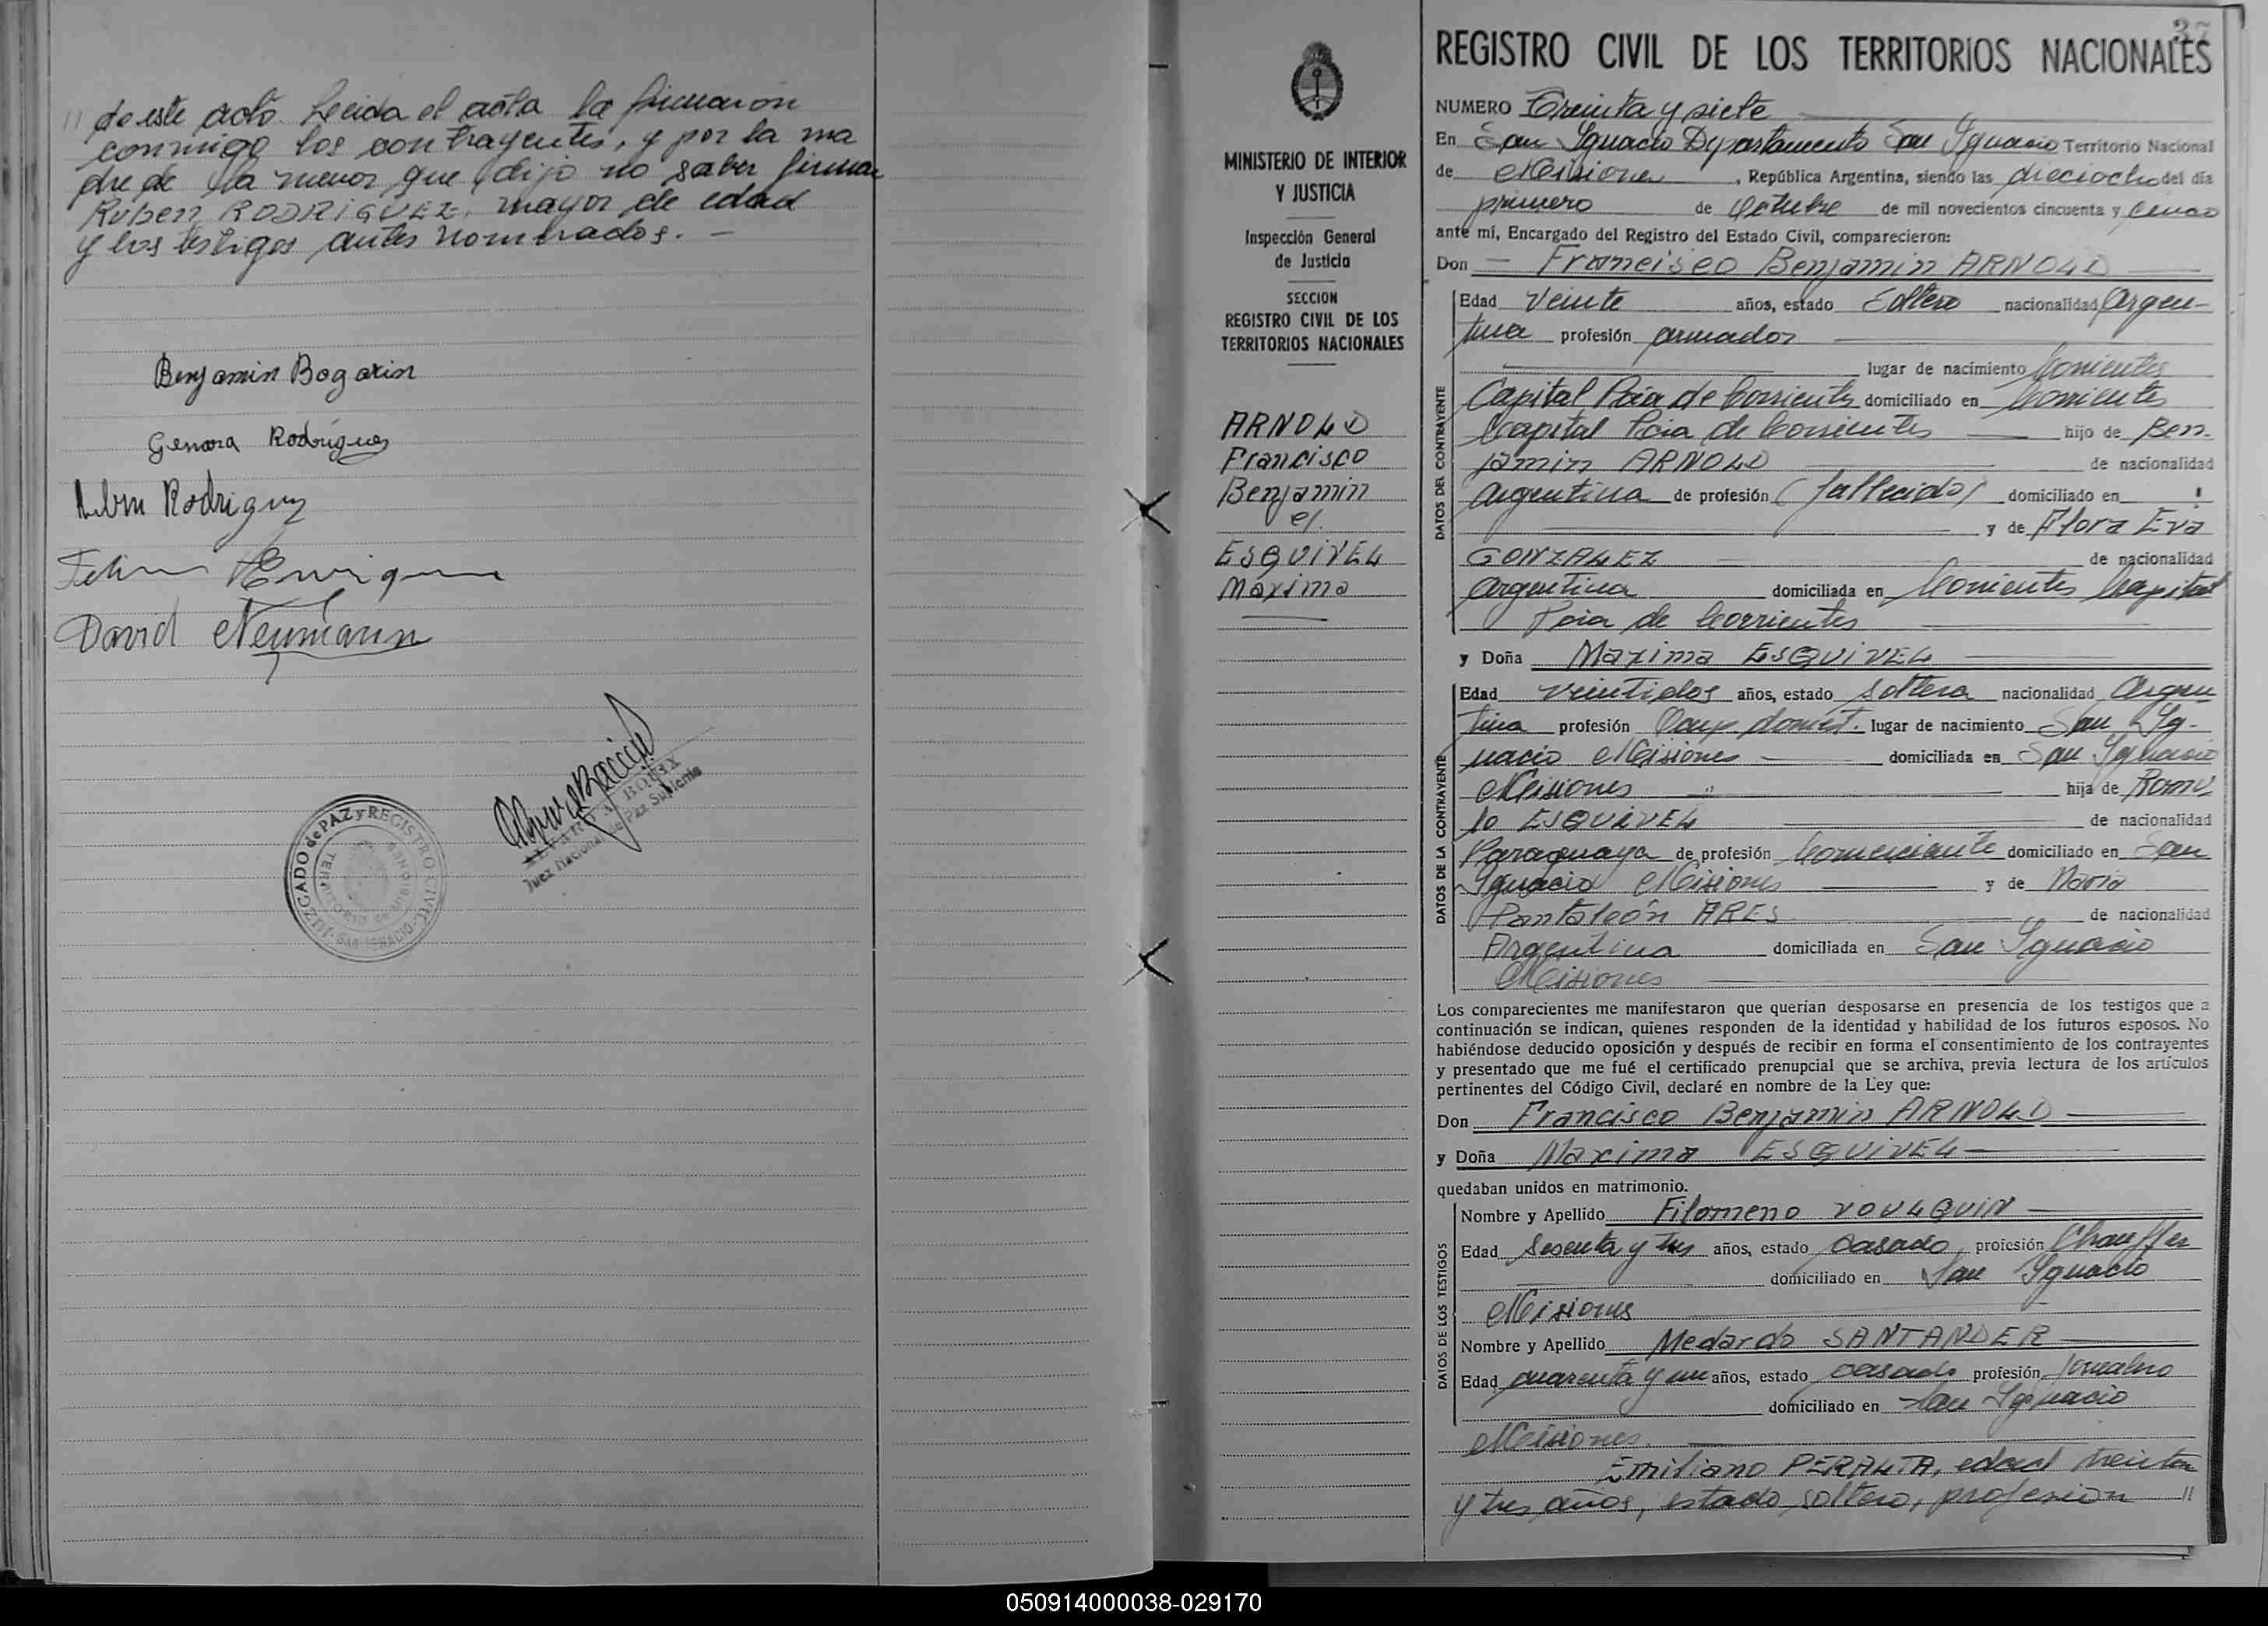 // de este acto. Leida el acta la firmaron
conmigo los contrayentes, y por la ma
dre de la menor que dijo no saber firmar
Ruben RODRIGUEZ, mayor de edad
y los testigos antes nombrados. —
Benjamin Bogarin
Genara Rodríguez
Rubén Rodriguez
David Neumann
JUZGADO de PAZ y REGISTRO CIVIL
SAN IGNACIO
Juez Nacional de Paz Suplente
MINISTERIO DE INTERIOR
Y JUSTICIA
Inspección General
de Justicia
SECCION
REGISTRO CIVIL DE LOS
TERRITORIOS NACIONALES
ARNOLD
Francisco
Benjamin
c/.
ESQUIVEL
Maxima
37
REGISTRO CIVIL DE LOS TERRITORIOS NACIONALES
NUMERO Treinta y siete
En San Ignacio Departamento San Ignacio Territorio Nacional
de Misiones, República Argentina, siendo las dieciocho del día
primero de Octubre de mil novecientos cincuenta y cinco
ante mí, Encargado del Registro del Estado Civil, comparecieron:
Don — Francisco Benjamin ARNOLD
DATOS DEL CONTRAYENTE
Edad veinte años, estado Soltero nacionalidad Argen-
tina profesión armador
lugar de nacimiento Corrientes
Capital Pcia de Corrientes domiciliado en Corrientes
Capital Pcia de Corrientes hijo de Ben-
jamin ARNOLD de nacionalidad
argentina de profesión (fallecido) domiciliado en
y de Flora Eva
GONZALEZ de nacionalidad
argentina domiciliada en Corrientes Capital
Pcia de Corrientes
y Doña Maxima ESQUIVEL
DATOS DE LA CONTRAYENTE
Edad veintidos años, estado soltera nacionalidad Argen
tina profesión Ocup. domést. lugar de nacimiento San Ig-
nacio Misiones domiciliada en San Ignacio
Misiones hija de Romu
lo ESQUIVEL de nacionalidad
Paraguaya de profesión Comerciante domiciliado en San
Ignacio Misiones y de Maria
Pantaleón ARES de nacionalidad
Argentina domiciliada en San Ignacio
Misiones
Los comparecientes me manifestaron que querían desposarse en presencia de los testigos que a
continuación se indican, quienes responden de la identidad y habilidad de los futuros esposos. No
habiéndose deducido oposición y después de recibir en forma el consentimiento de los contrayentes
y presentado que me fué el certificado prenupcial que se archiva, previa lectura de los artículos
pertinentes del Código Civil, declaré en nombre de la Ley que:
Don Francisco Benjamin ARNOLD
y Doña Maxima ESQUIVEL —
quedaban unidos en matrimonio.
DATOS DE LOS TESTIGOS
Nombre y Apellido Filomeno YOULQUIN
Edad Sesenta y tres años, estado casado profesión Chauffer
domiciliado en San Ignacio
Misiones
Nombre y Apellido Medardo SANTANDER
Edad cuarenta y un años, estado casado profesión Jornalero
domiciliado en San Ignacio
Misiones.
Emiliano PERALTA, edad treinta
y tres años, estado soltero, profesion //
050914000038-029170